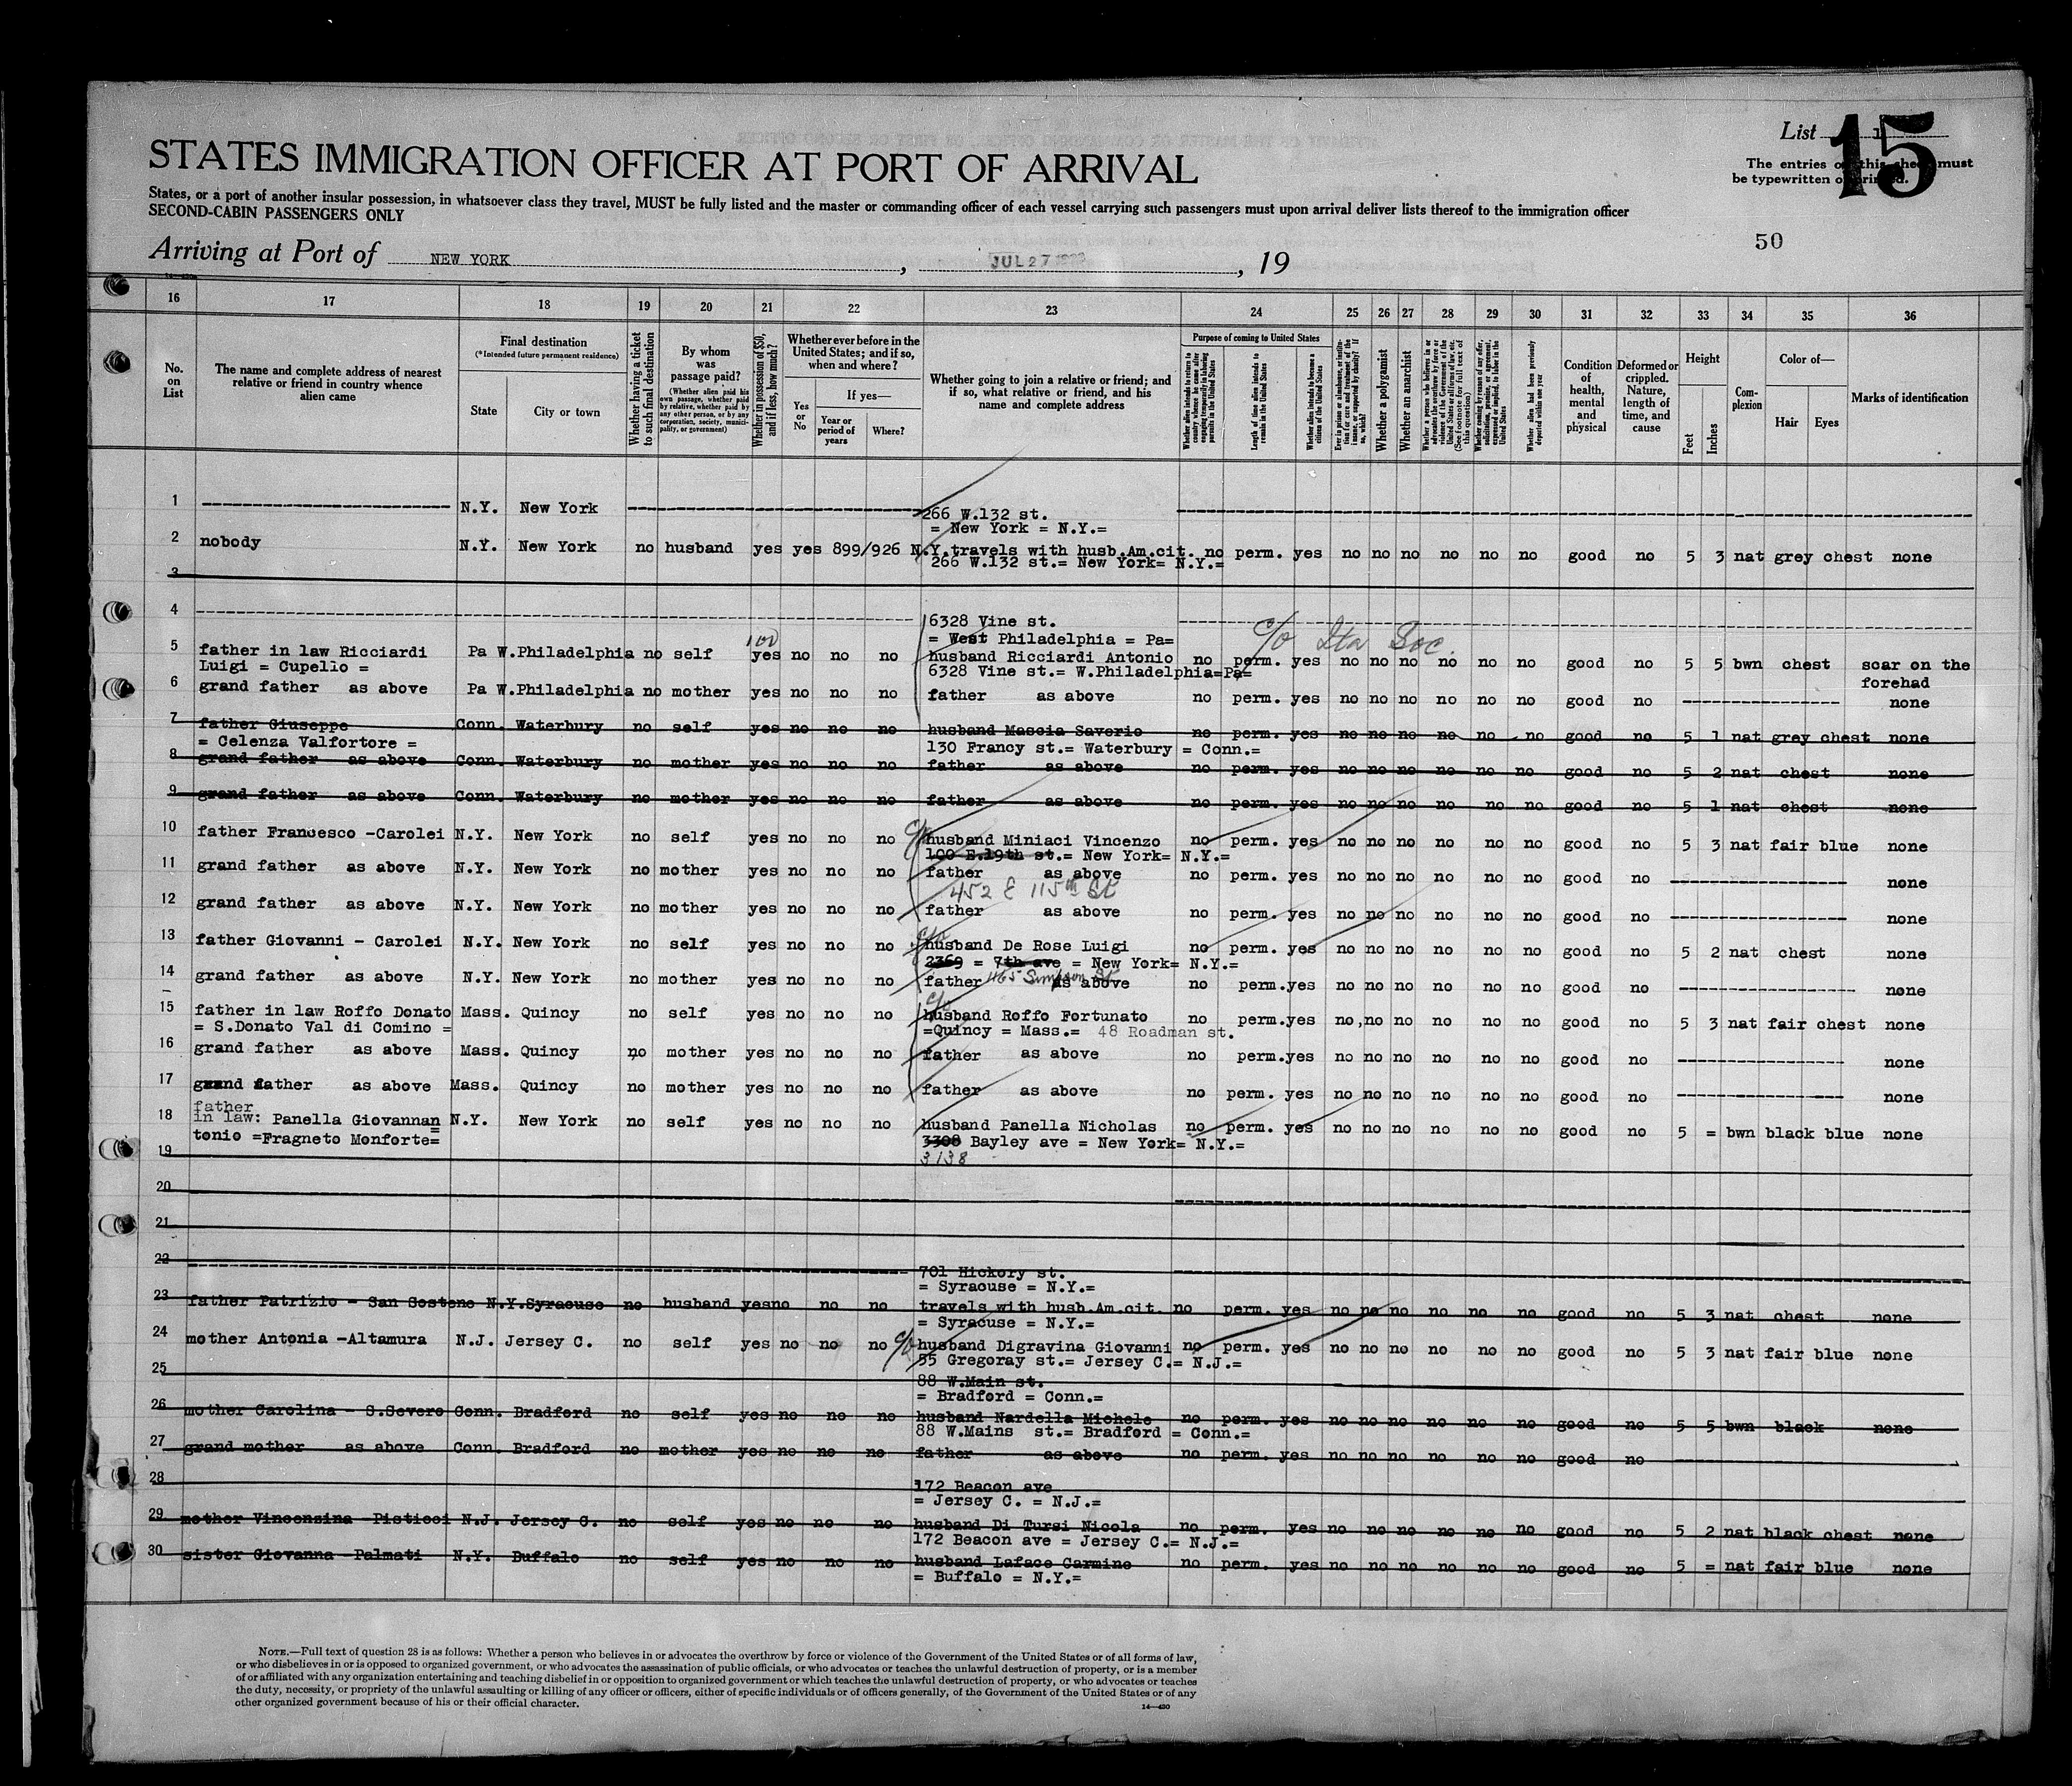 List 1
15
STATES IMMIGRATION OFFICER AT PORT OF ARRIVAL
The entries on this sheet must
be typewritten or printed.
States, or a port of another insular possession, in whatsoever class they travel, MUST be fully listed and the master or commanding officer of each vessel carrying such passengers must upon arrival deliver lists thereof to the immigration officer
SECOND-CABIN PASSENGERS ONLY
50
Arriving at Port of NEW YORK, JUL 27, 19
16 17 18 19 20 21 22 23 24 25 26 27 28 29 30 31 32 33 34 35 36
No. on List
The name and complete address of nearest relative or friend in country whence alien came
Final destination
(*Intended future permanent residence)
State
City or town
Whether having a ticket to such final destination
By whom was passage paid?
(Whether alien paid his own passage, whether paid by relative, whether paid by any other person, or by any corporation, society, municipality, or government)
Whether in possession of $50, and if less, how much?
Whether ever before in the United States; and if so, when and where?
Yes or No
If yes—
Year or period of years
Where?
Whether going to join a relative or friend; and if so, what relative or friend, and his name and complete address
Purpose of coming to United States
Whether alien intends to return to country whence he came after engaging temporarily in laboring pursuits in the United States
Length of time alien intends to remain in the United States
Whether alien intends to become a citizen of the United States
Ever in prison or almshouse, or institution for care and treatment of the insane, or supported by charity? If so, which?
Whether a polygamist
Whether an anarchist
Whether a person who believes in or advocates the overthrow by force or violence of the Government of the United States or all forms of law, etc. (See footnote for full text of this question)
Whether coming by reason of any offer, solicitation, promise, or agreement, expressed or implied, to labor in the United States
Whether alien had been previously deported within one year
Condition of health, mental and physical
Deformed or crippled. Nature, length of time, and cause
Height
Feet
Inches
Complexion
Color of—
Hair
Eyes
Marks of identification
1 N.Y. New York 266 W.132 st.
= New York = N.Y.=
2 nobody N.Y. New York no husband yes yes 899/926 N.Y. travels with husb.Am.cit. no perm. yes no no no no no no good no 5 3 nat grey chest none
266 W.132 st.= New York= N.Y.=
3
4 6328 Vine st.
= West Philadelphia = Pa=
100
c/o Ita Soc.
5 father in law Ricciardi Pa W.Philadelphia no self yes no no no husband Ricciardi Antonio no perm. yes no no no no no no good no 5 5 bwn chest scar on the
Luigi = Cupello = 6328 Vine st.= W.Philadelphia=Pa= forehad
6 grand father as above Pa W.Philadelphia no mother yes no no no father as above no perm. yes no no no no no no good no none
7 father Giuseppe Conn. Waterbury no self yes no no no husband Mascia Saverio no perm. yes no no no no no no good no 5 1 nat grey chest none
= Celenza Valfortore = 130 Francy st.= Waterbury = Conn.=
8 grand father as above Conn. Waterbury no mother yes no no no father as above no perm. yes no no no no no no good no 5 2 nat chest none
9 grand father as above Conn. Waterbury no mother yes no no no father as above no perm. yes no no no no no no good no 5 1 nat chest none
10 father Francesco -Carolei N.Y. New York no self yes no no no c/o husband Miniaci Vincenzo no perm. yes no no no no no no good no 5 3 nat fair blue none
100 E.19th st.= New York= N.Y.=
11 grand father as above N.Y. New York no mother yes no no no father as above no perm. yes no no no no no no good no none
452 E 115th St
12 grand father as above N.Y. New York no mother yes no no no father as above no perm. yes no no no no no no good no none
13 father Giovanni - Carolei N.Y. New York no self yes no no no c/o husband De Rose Luigi no perm. yes no no no no no no good no 5 2 nat chest none
2369 = 7th ave = New York= N.Y.=
1165 Simpson St
14 grand father as above N.Y. New York no mother yes no no no father as above no perm.yes no no no no no no good no none
c/o
15 father in law Roffo Donato Mass. Quincy no self yes no no no husband Roffo Fortunato no perm.yes no,no no no no no good no 5 3 nat fair chest none
= S.Donato Val di Comino = =Quincy = Mass.= 48 Roadman st.
16 grand father as above Mass. Quincy no mother yes no no no father as above no perm.yes no no no no no no good no none
17 grand father as above Mass. Quincy no mother yes no no no father as above no perm. yes no no no no no no good no none
father
18 in law: Panella Giovannan N.Y. New York no self yes no no no husband Panella Nicholas no perm. yes no no no no no no good no 5 = bwn black blue none
tonio =Fragneto Monforte= 3308 Bayley ave = New York= N.Y.=
19 3138
20
21
22 701 Hickory st.
= Syracuse = N.Y.=
23 father Patrizio - San Sostene N.Y.Syracuse no husband yes no no no travels with husb.Am.cit. no perm. yes no no no no no no good no 5 3 nat chest none
= Syracuse = N.Y.=
24 mother Antonia -Altamura N.J. Jersey C. no self yes no no no c/o husband Digravina Giovanni no perm. yes no no no no no no good no 5 3 nat fair blue none
55 Gregoray st.= Jersey C.= N.J.=
25 88 W.Main st.
= Bradford = Conn.=
26 mother Carolina - S.Severo Conn. Bradford no self yes no no no husband Nardella Michele no perm. yes no no no no no no good no 5 5 bwn black none
88 W.Mains st.= Bradford = Conn.=
27 grand mother as above Conn. Bradford no mother yes no no no father as above no perm. yes no no no no no no good no
28 172 Beacon ave
= Jersey C. = N.J.=
29 mother Vincenzina Pisticci N.J. Jersey C. no self yes no no no husband Di Tursi Nicola no perm. yes no no no no no no good no 5 2 nat black chest none
172 Beacon ave = Jersey C.= N.J.=
30 sister Giovanna Palmati N.Y. Buffalo no self yes no no no husband Laface Carmine no perm. yes no no no no no no good no 5 = nat fair blue none
= Buffalo = N.Y.=
NOTE.—Full text of question 28 is as follows: Whether a person who believes in or advocates the overthrow by force or violence of the Government of the United States or of all forms of law,
or who disbelieves in or is opposed to organized government, or who advocates the assassination of public officials, or who advocates or teaches the unlawful destruction of property, or is a member
of or affiliated with any organization entertaining and teaching disbelief in or opposition to organized government or which teaches the unlawful destruction of property, or who advocates or teaches
the duty, necessity, or propriety of the unlawful assaulting or killing of any officer or officers, either of specific individuals or of officers generally, of the Government of the United States or of any
other organized government because of his or their official character.
14—430